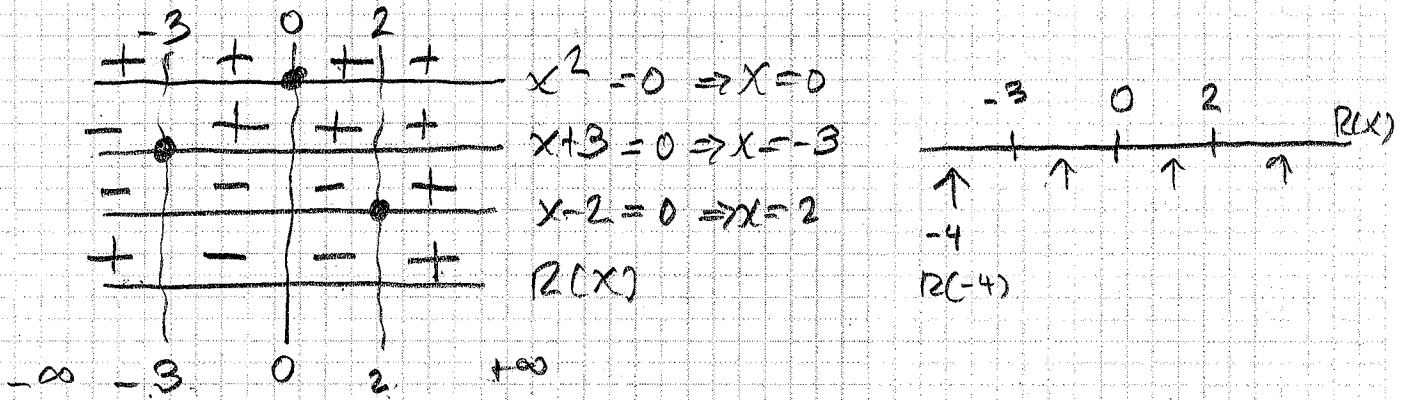 -3 0 2
+ + + + x² = 0 ⇒ x = 0
- + + + x+3 = 0 ⇒ x = -3
- - - + x-2 = 0 ⇒ x = 2
+ - - + R(x)
-∞ -3 0 2 +∞
-3 0 2 R(x)
↑ ↑ ↑ ↑
-4
R(-4)